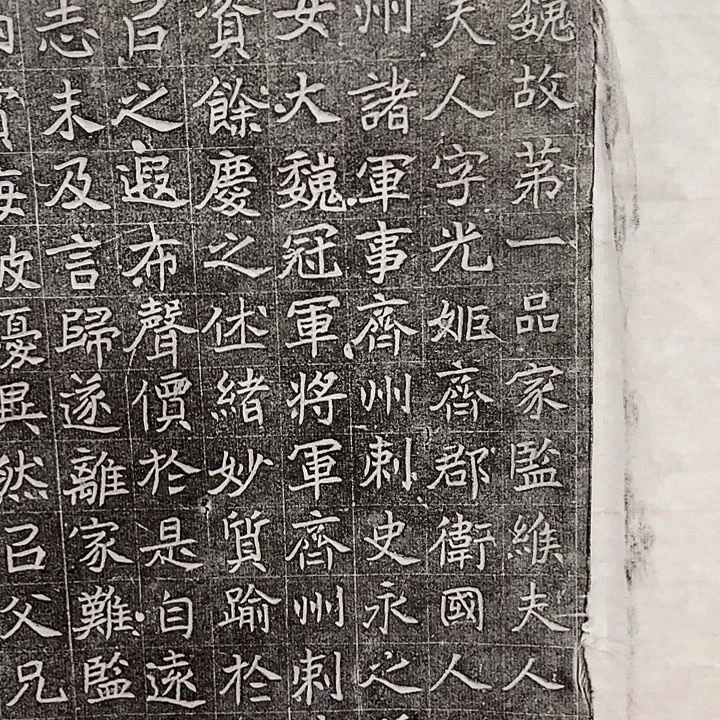 魏故苐一品家監緱夫人
夫人字光姬齊郡衛國人
州諸軍事齊州刺史永之
女大魏冠軍將軍齊州刺
資餘慶之休緒妙質踰於
召之遐布聲價於是自遠
志未及言歸遂離家難監
憂異然召父兄